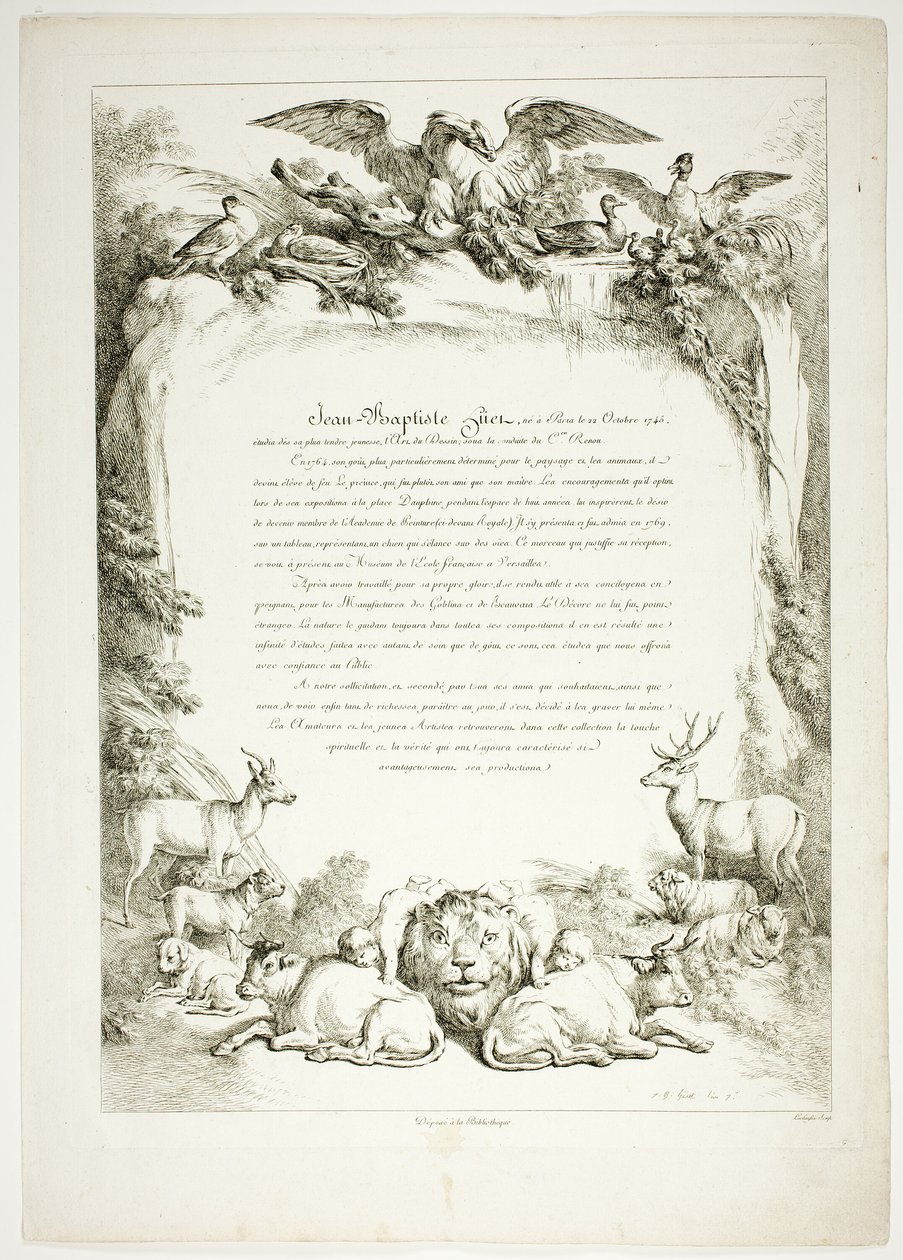 Jean-Baptiste Hüet, né à Paris le 22 Octobre 1745,
étudia dès sa plus tendre jeunesse, l'Art du Dessin, sous la conduite du C.en Renou.
En 1764, son goût plus particulièrement déterminé pour le paysage et les animaux, il
devint élève de feu Le preince, qui fut plutôt son ami que son maître. Les encouragements qu'il optint
lors de ses expositions à la place Dauphine pendant l'espace de huit années lui inspirèrent le désir
de devenir membre de l'Academie de Peinture (ci-devant Royale) Il s'y présenta et fut admis en 1769,
sur un tableau, représentant un chien qui s'élance sur des oies. Ce morceau qui justifie sa réception,
se voit à présent au Muséum de l'Ecole française à Versailles.
Après avoir travaillé pour sa propre gloire, il se rendit utile à ses concitoyens en
peignant pour les Manufactures des Goblins et de Beauvais Le Décore ne lui fut point
étranger. La nature le guidant toujours dans toutes ses compositions il en est résulté une
infinité d'études faites avec autant de soin que de goût, ce sont ces études que nous offrons
avec confiance au Public
A notre sollicitation, et secondé par tous ses amis qui souhaitaient ainsi que
nous, de voir enfin tant de richesses paraître au jour, il s'est décidé à les graver lui même
Les Amateurs et les jeunes Artistes retrouveront dans cette collection la touche
spirituelle et la vérité qui ont toujours caractérisé si
avantageusement ses productions
Déposé à la Bibliothèque